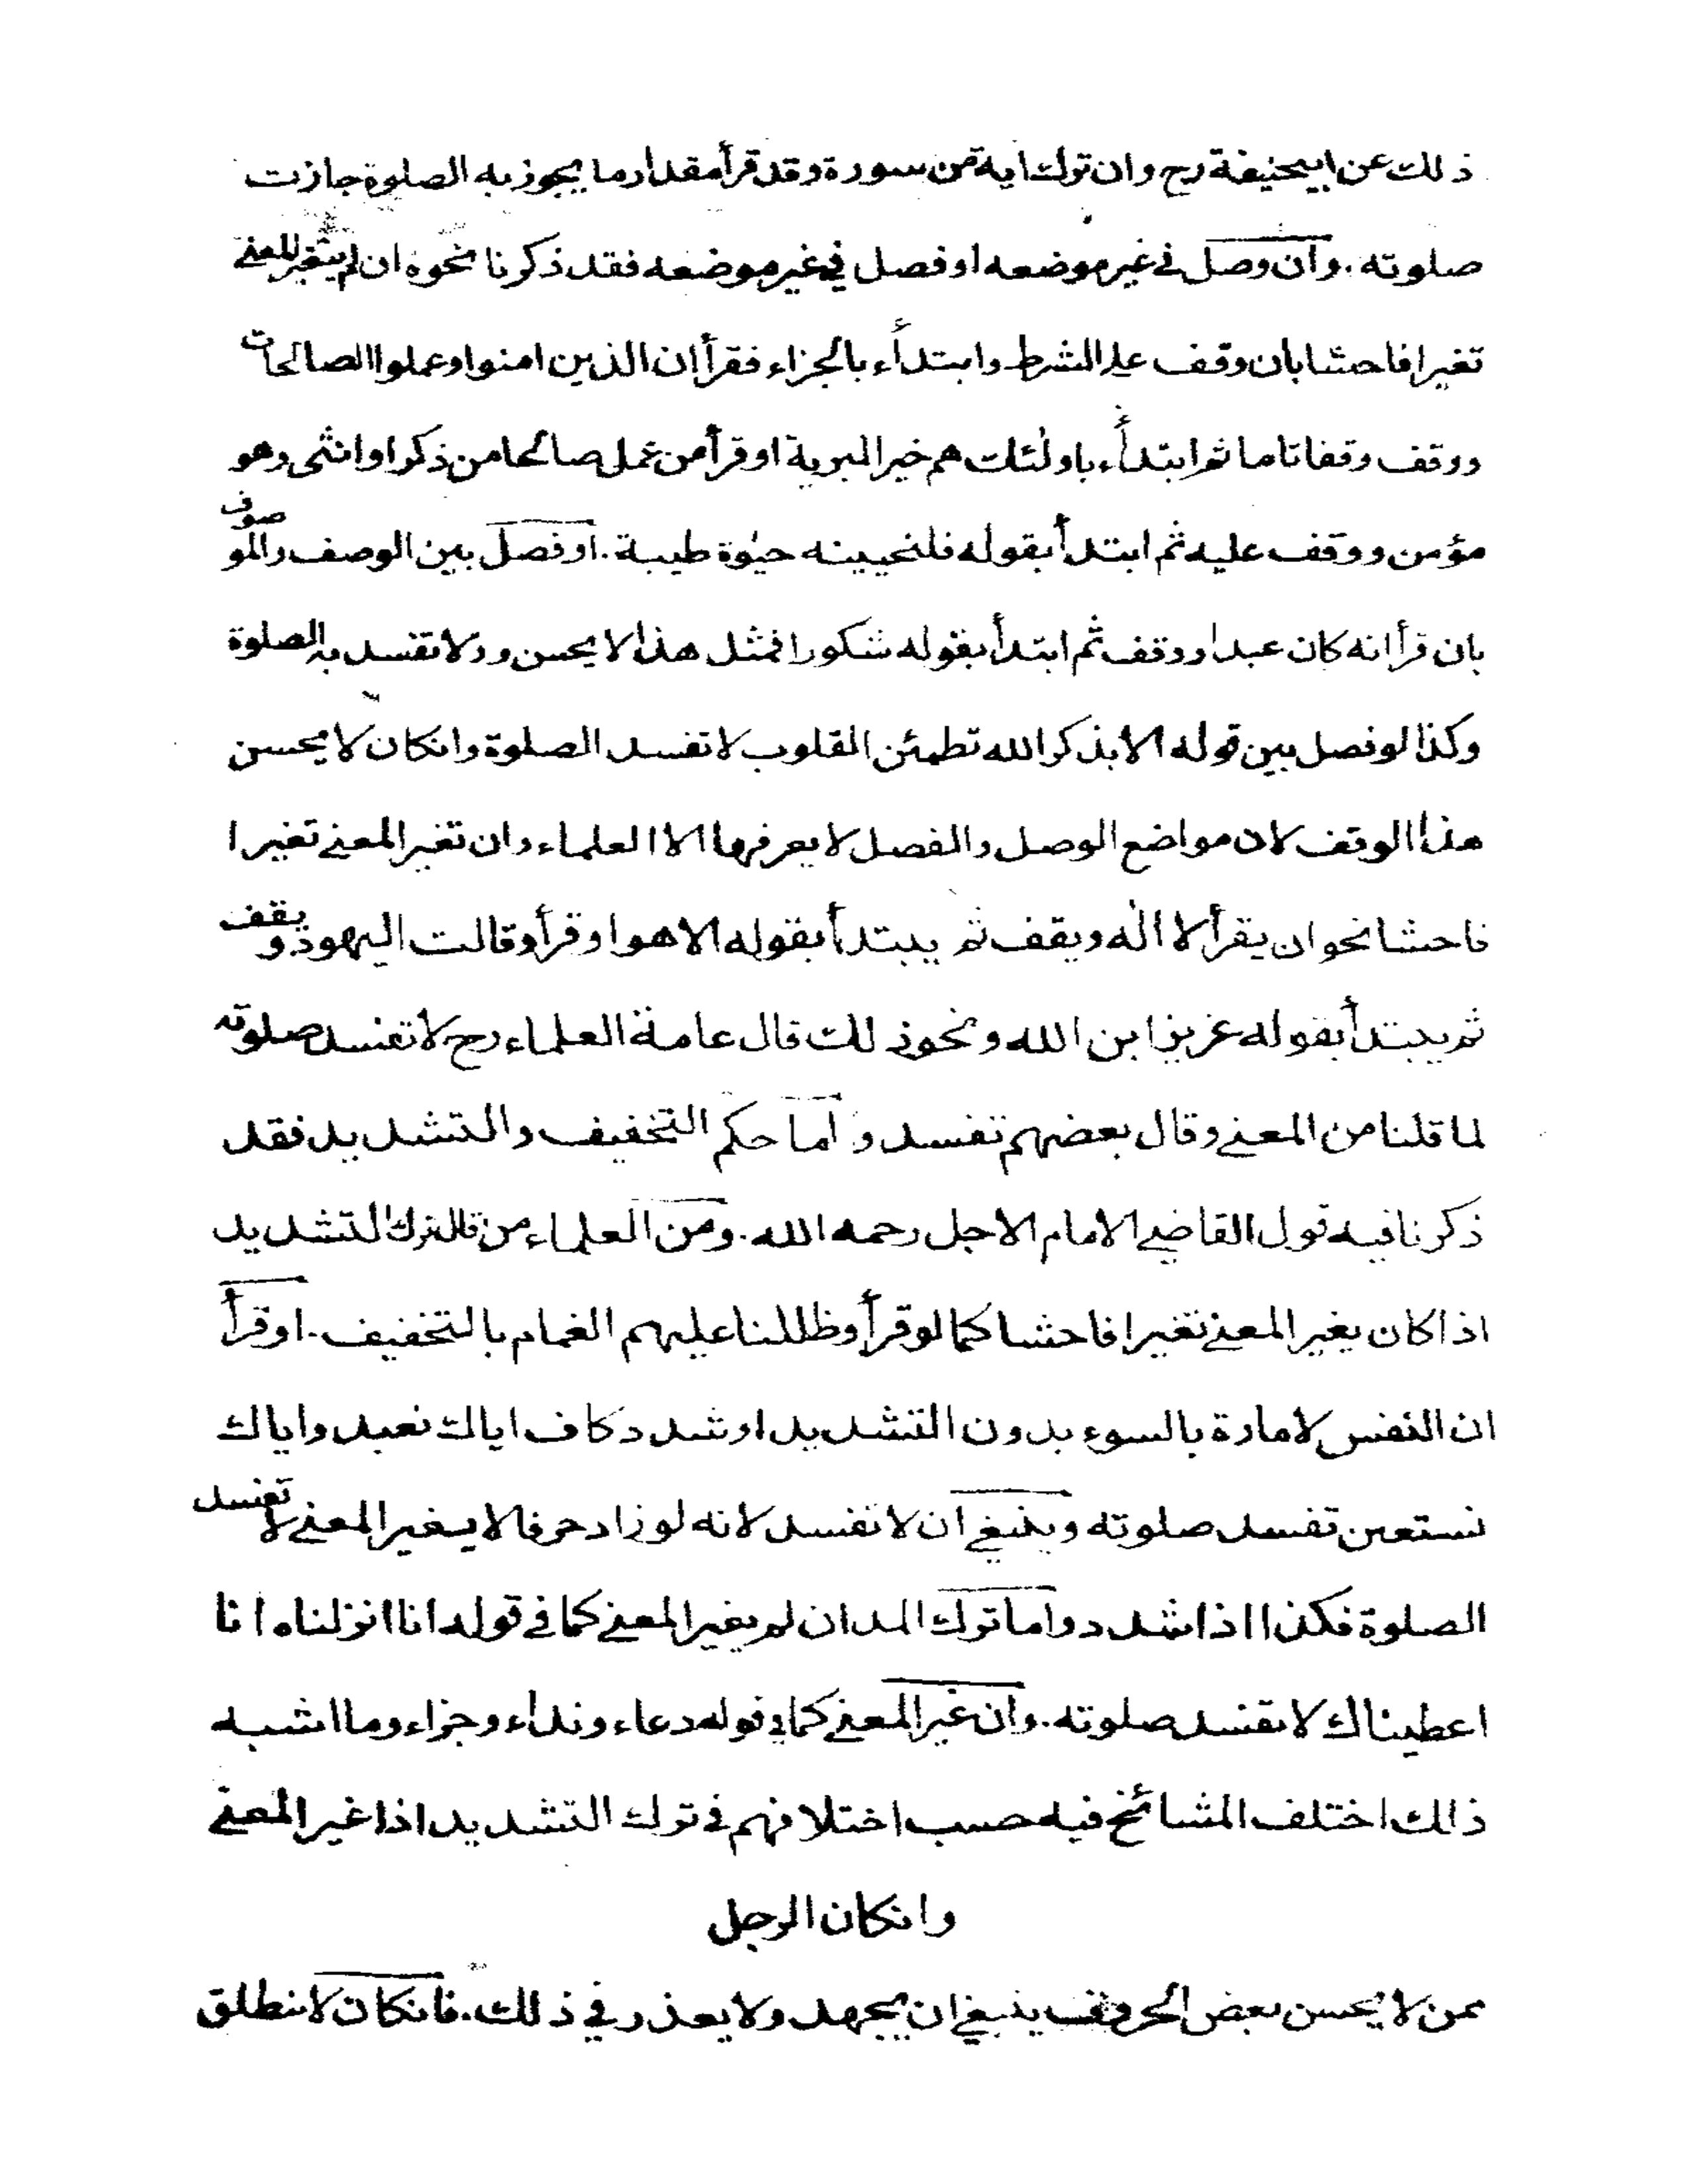 ذلك عن ابيحنيفة رح وان ترك اية من سورة وقد قرأ مقدار ما يجوز به الصلوة جازت
صلوته . وان وصل في غير موضعه او فصل في غير موضعه فقد ذكرنا نحوه ان لم يتغير المعنى
تغيرا فاحشا بان وقف على الشرط وابتدأء بالجزاء فقرأ ان الذين امنوا وعملوا الصالحات
ووقف وقفا تاما ثم ابتدأء باولئك هم خير البرية او قرأ من عمل صالحا من ذكر او انثى وهو
مؤمن ووقف عليه ثم ابتدأ بقوله فلنحيينه حيوة طيبة . او فصل بين الوصف والموصوف
بان قرأ انه كان عبدا ووقف ثم ابتدأ بقوله شكورا فمثل هذا لا يحسن ولا تفسد به الصلوة
وكذا لو فصل بين قوله الا بذكر الله تطمئن القلوب لا تفسد الصلوة وانكان لا يحسن
هذا الوقف لان مواضع الوصل والفصل لا يعرفها الا العلماء وان تغير المعنى تغيرا
فاحشا نحو ان يقرأ لا اله ويقف ثم يبتدأ بقوله الا هو او قرأ وقالت اليهود ويقف
ثم يبتدأ بقوله عزيز ابن الله ونحو ذلك قال عامة العلماء رح لا تفسد صلوته
لما قلنا من المعنى وقال بعضهم تفسد و اما حكم التخفيف والتشديد فقد
ذكرنا فيه قول القاضي الامام الاجل رحمه الله . ومن العلماء من قال ترك التشديد
اذا كان يغير المعنى تغيرا فاحشا كما لو قرأ وظللنا عليهم الغمام بالتخفيف . او قرأ
ان النفس لامارة بالسوء بدون التشديد او شدد كاف اياك نعبد واياك
نستعين تفسد صلوته وينبغي ان لا تفسد لانه لو زاد حرفا لا يغير المعنى لا تفسد
الصلوة فكذا اذا شدد واما ترك المد ان لم يغير المعنى كما في قوله انا انزلناه انا
اعطيناك لا تفسد صلوته . وان غير المعنى كما في قوله دعاء ونداء وجزاء وما اشبه
ذلك اختلف المشائخ فيه حسب اختلافهم في ترك التشديد اذا غير المعنى
وانكان الرجل
ممن لا يحسن بعض الحروف ينبغي ان يجهد ولا يعذر في ذلك . فانكان لا ينطلق